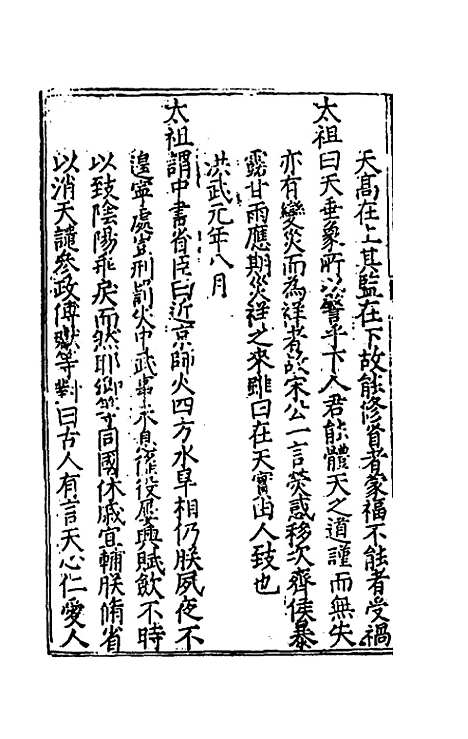 天髙在上其監在下故能修省者蒙福不能者受禍
太祖曰天垂象所以警乎下人君能體天之道謹而無失
亦有變災而為祥者故宋公一言熒惑移次齊侯暴
露甘雨應期災祥之來雖曰在天實由人致也
洪武元年八月
太祖謂中書省臣曰近京師火四方水旱相仍朕夙夜不
遑寧處豈刑罰失中武事未息徭役屢興賦斂不時
以致陰陽乖戾而然耶卿等同國休戚宜輔朕脩省
以消天譴參政傅瓛等對曰古人有言天心仁愛人